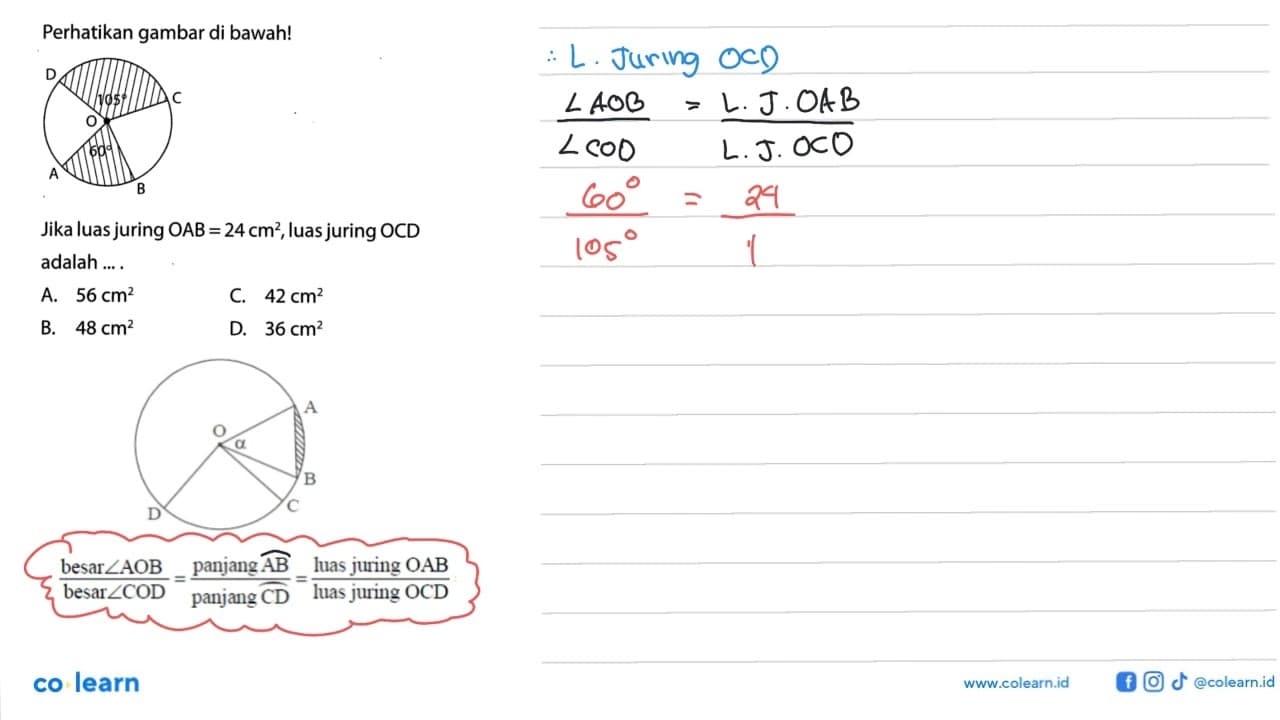 Perhatikan gambar di bawah!
D
105°
C
O
60°
A
B
Jika luas juring OAB = 24 cm², luas juring OCD
adalah ... .
A. 56 cm² C. 42 cm²
B. 48 cm² D. 36 cm²
A
O
α
B
C
D
besar∠AOB / besar∠COD = panjang AB / panjang CD = luas juring OAB / luas juring OCD
∴ L. Juring OCD
∠AOB / ∠COD = L. J. OAB / L. J. OCD
60° / 105° = 24
co learn
www.colearn.id
@colearn.id